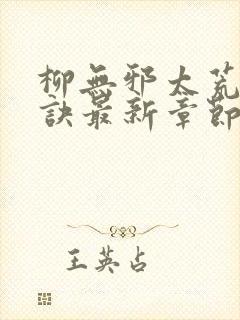 柳無邪太荒
訣最新章節
王英占